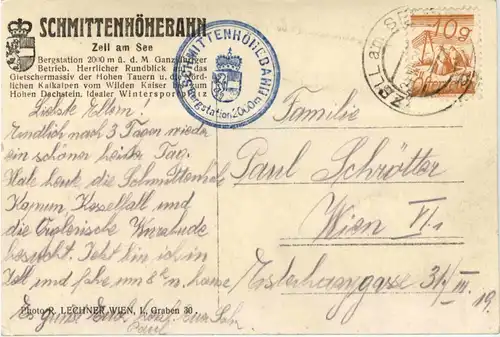 SCHMITTENHÖHEBAHN
Zell am See
Bergstation 2000 m ü. d. M. Ganzjähriger
Betrieb. Herrlicher Rundblick auf das
Gletschermassiv der Hohen Tauern u. die Nörd-
lichen Kalkalpen vom Wilden Kaiser bis zum
Hohen Dachstein. Idealer Wintersportplatz
SCHMITTENHÖHEBAHN
Bergstation 2000m
10g
ZELL am
Liebste Eltern!
Endlich nach 3 Tagen wieder
ein schöner heiterer Tag.
Habe heute die Schmittenhöhe
Kaprun, Kesselfall und
die
besucht. Jetzt bin ich in
Zell und fahre um n. hause
Es grüsst Euch Euer Sohn
Paul
Familie
Paul Schrötter
Wien VI.
Esterhazygasse 31/III/19.
Photo R. LECHNER, WIEN, I., Graben 30.